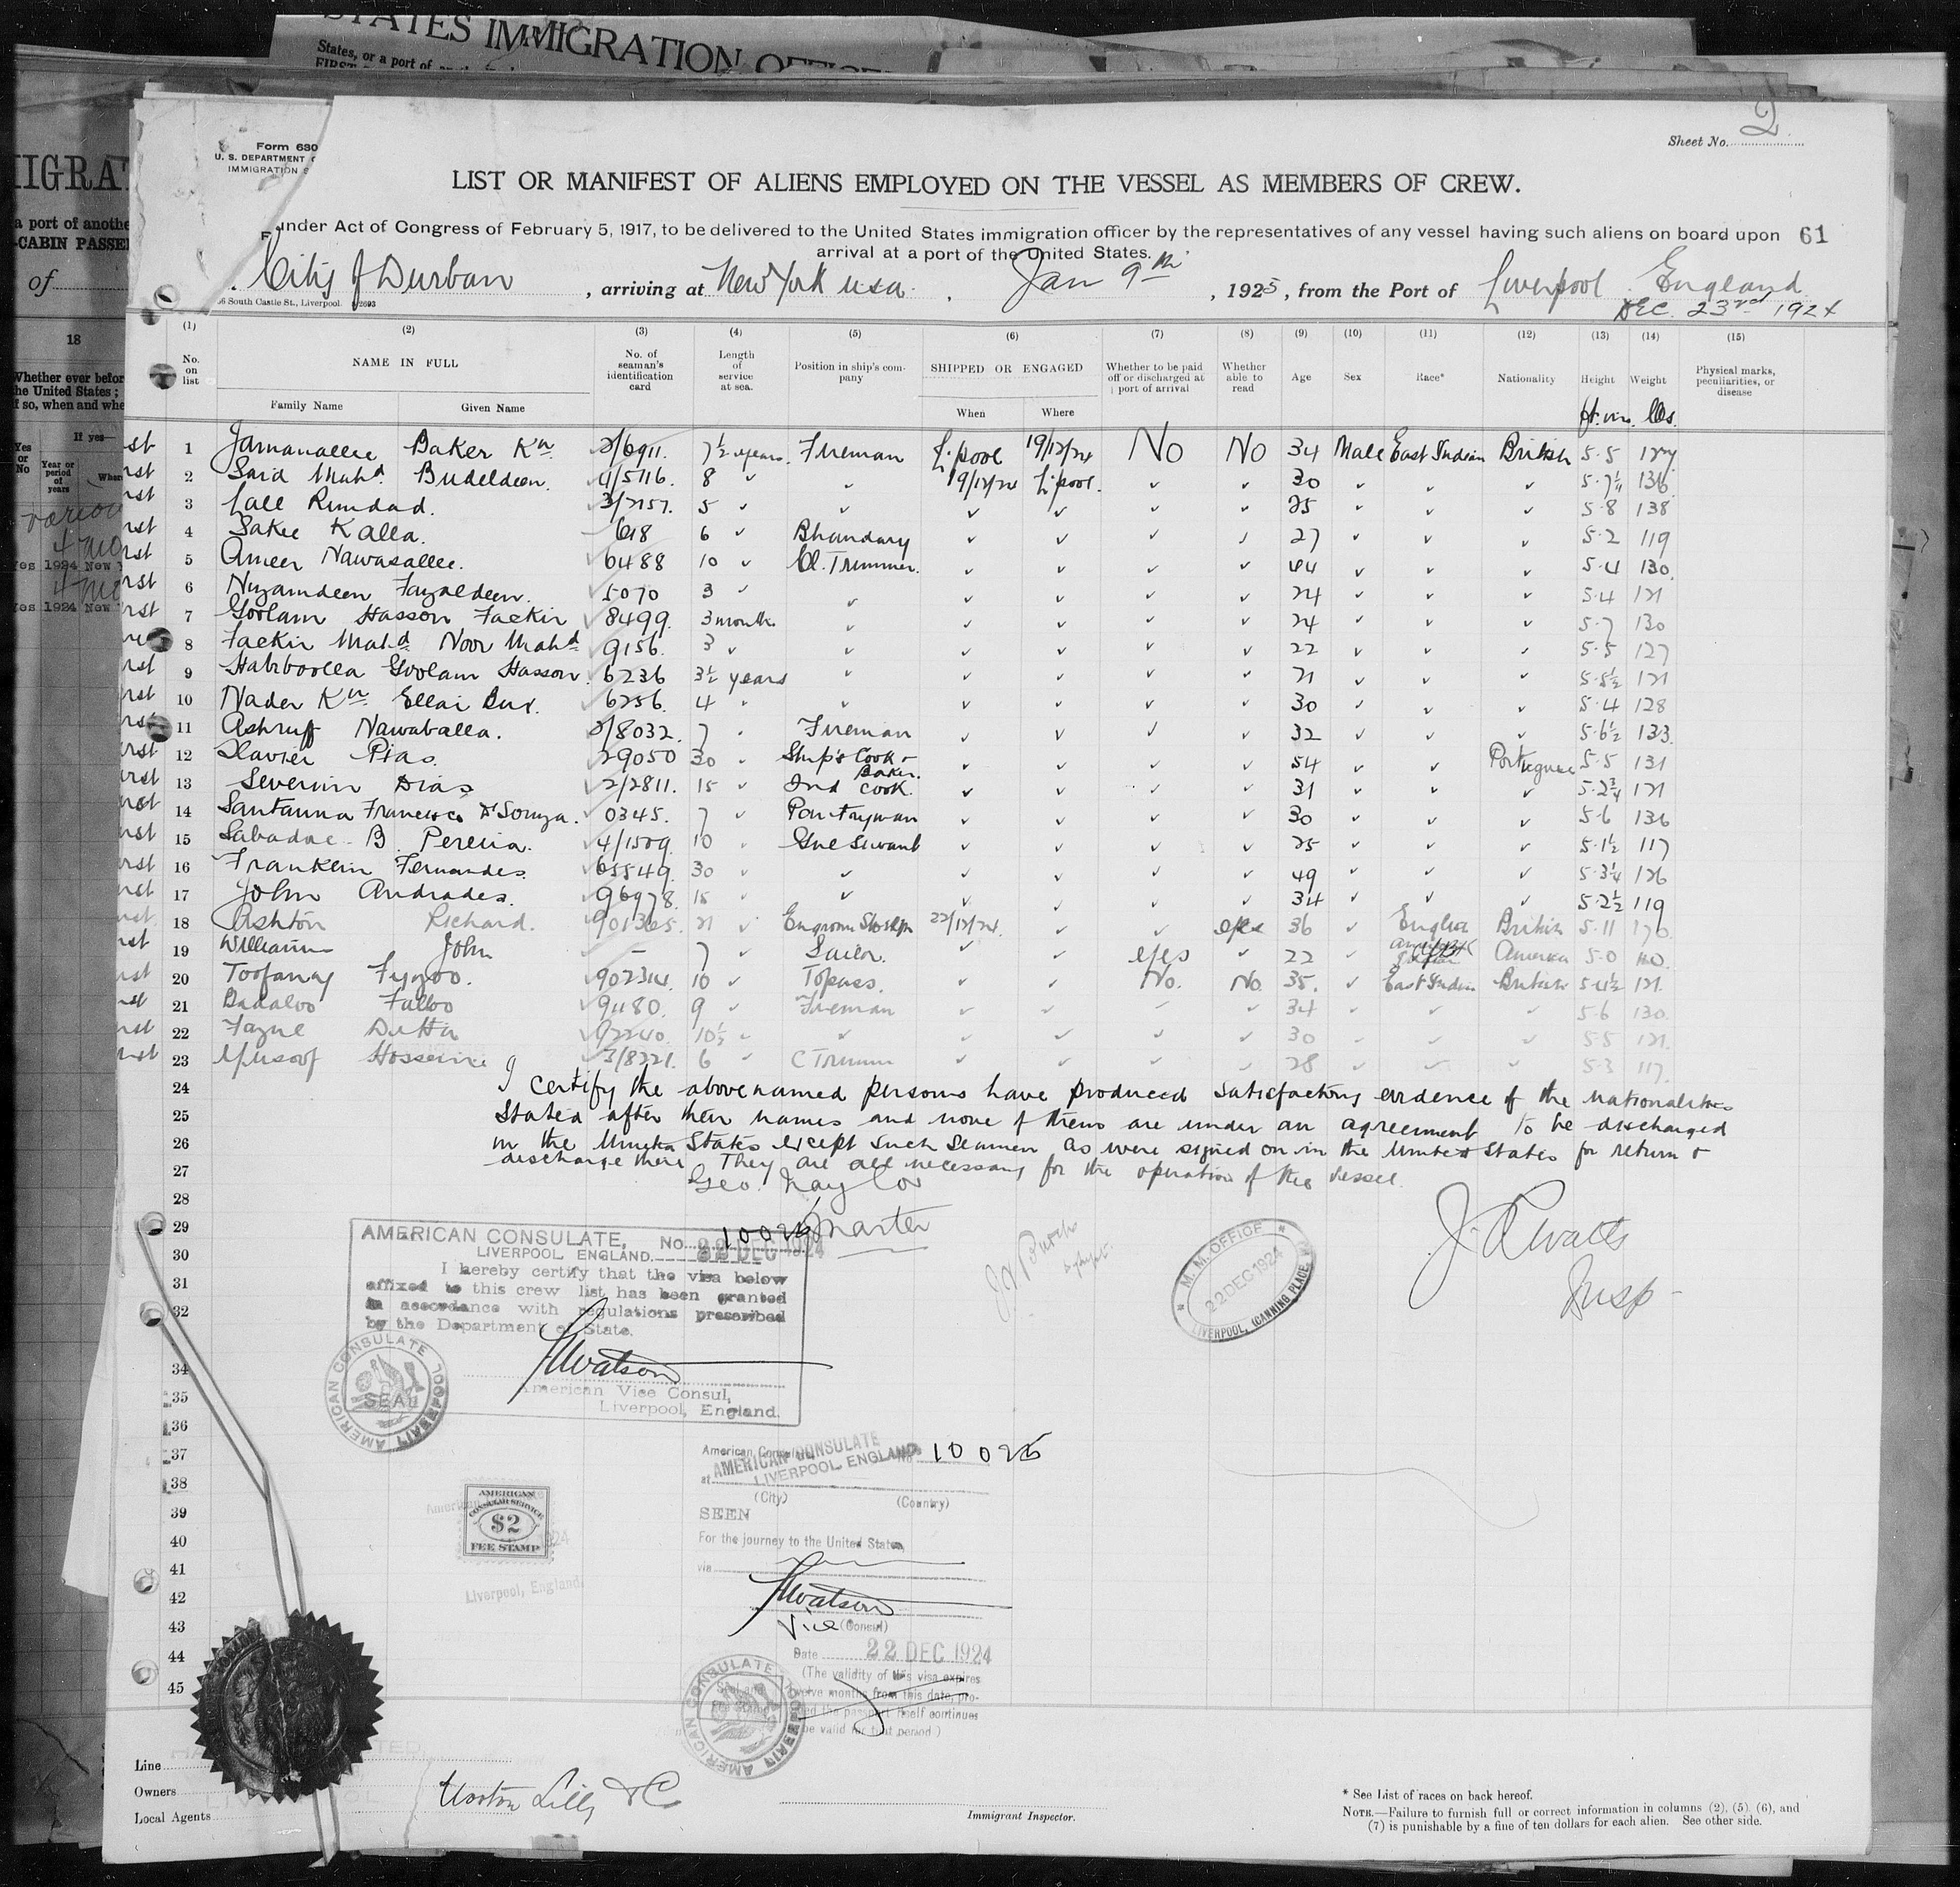 STATES IMMIGRATION OFFICE
States, or a port of
Sheet No. 2
Form 680
U. S. DEPARTMENT
IMMIGRATION S
LIST OR MANIFEST OF ALIENS EMPLOYED ON THE VESSEL AS MEMBERS OF CREW.
under Act of Congress of February 5, 1917, to be delivered to the United States immigration officer by the representatives of any vessel having such aliens on board upon 61
arrival at a port of the United States.
City of Durban, arriving at New York USA. Jan 9th, 1925, from the Port of Liverpool England
Dec. 23rd 1924
South Castle St., Liverpool.
(1) (2) (3) (4) (5) (6) (7) (8) (9) (10) (11) (12) (13) (14) (15)
No. on list NAME IN FULL No. of seaman's identification card Length of service at sea. Position in ship's company SHIPPED OR ENGAGED Whether to be paid off or discharged at port of arrival Whether able to read Age Sex Race* Nationality Height Weight Physical marks, peculiarities, or disease
Family Name Given Name When Where ft. ins. lbs.
1 Jamanallee Baker Kn. 3/6911. 7½ years. Fireman L'pool 19/12/24 No No 34 Male East Indian British 5·5 127
2 Said Mahd. Budeldeen. 4/5116. 8 ✓ ✓ 19/12/24 L'pool. ✓ ✓ 30 ✓ ✓ ✓ 136
3 Lall Rumdad. 3/2157. 5 ✓ ✓ ✓ ✓ ✓ ✓ 25 ✓ ✓ ✓ 5·8 138
4 Sakee Kalla. 618 6 ✓ Bhandary ✓ ✓ ✓ ✓ 27 ✓ ✓ ✓ 5·2 119
5 Ameer Nawasallee. 6488 10 ✓ Cl. Trimmer. ✓ ✓ ✓ ✓ 44 ✓ ✓ ✓ 5·4 130
6 Nizamdeen Fazaldeen. 5070 3 ✓ ✓ ✓ ✓ ✓ ✓ 24 ✓ ✓ ✓ 5·4 121
7 Goolam Hasson Fackir 8499. 3 months ✓ ✓ ✓ ✓ ✓ 24 ✓ ✓ ✓ 5·7 130
8 Fackir Mahd. Noor Mahd 9156. 3 ✓ ✓ ✓ ✓ ✓ ✓ 22 ✓ ✓ ✓ 5·5 127
9 Habiboolla Goolam Hasson. 6236 3½ years ✓ ✓ ✓ ✓ ✓ 21 ✓ ✓ ✓ 5·5½ 121
10 Nader Kn. Ellai Bux. 6256. 4 ✓ ✓ ✓ ✓ ✓ ✓ 30 ✓ ✓ ✓ 5·4 128
11 Ashruff Nawaballa. 3/8032. 7 ✓ Fireman ✓ ✓ ✓ ✓ 32 ✓ ✓ ✓ 5·6½ 133
12 Xavier Pias. 29050 30 ✓ Ship's Cook & Baker. ✓ ✓ ✓ ✓ 54 ✓ ✓ Portuguese 5·5 131
13 Severin Dias 2/2811. 15 ✓ 2nd Cook. ✓ ✓ ✓ ✓ 31 ✓ ✓ ✓ 5·2¾ 121
14 Santanna Francisco D'Souza. 0345. 7 ✓ Pantryman ✓ ✓ ✓ ✓ 30 ✓ ✓ ✓ 5·6 136
15 B. Pereira. 4/1509. 10 ✓ Servant ✓ ✓ ✓ ✓ 25 ✓ ✓ ✓ 5·1½ 117
16 Franklin Fernandes. 30 ✓ ✓ ✓ ✓ ✓ ✓ 49 ✓ ✓ ✓ 5·3¼ 126
17 John Andrades. 96978. 15 ✓ ✓ ✓ ✓ ✓ ✓ 34 ✓ ✓ ✓ 5·2½ 119
18 Ashton Richard. 901365. 21 ✓ 22/12/24. ✓ ✓ yes 36 ✓ English British 5·11 170
19 Williams John – 7 ✓ Sailor. ✓ ✓ yes ✓ 22 ✓ America 5·0
20 Toofanay Fyzoo. 902314. 10 ✓ Topass. ✓ ✓ No. No 35. ✓ East Indian British 5·4½ 121.
21 Badaloo Fulloo 9480. 9 ✓ Fireman ✓ ✓ ✓ ✓ 34 ✓ ✓ ✓ 5·6 130.
22 92240. 10½ ✓ ✓ ✓ ✓ ✓ ✓ 30 ✓ ✓ ✓ 5·5 121.
23 Hosseine 3/8321. 6 ✓ C Trimmer ✓ ✓ ✓ ✓ 28 ✓ ✓ ✓ 5·3 117.
24 I certify the abovenamed persons have produced satisfactory evidence of the nationalities
25 stated after their names and none of them are under an agreement to be discharged
26 in the United States except such seamen as were signed on in the United States for return &
27 discharge there. They are all necessary for the operation of the vessel.
28 Geo. Naylor
29 Master
30
31
32
34
35
36
37
38
39
40
41
42
43
44
45
AMERICAN CONSULATE, NO. 10026
LIVERPOOL, ENGLAND. 22 DEC 1924
I hereby certify that the visa below
affixed to this crew list has been granted
in accordance with regulations prescribed
by the Department of State.
Watson
American Vice Consul,
Liverpool, England.
AMERICAN CONSULATE LIVERPOOL
SEAL
M. M. OFFICE
22 DEC 1924
LIVERPOOL, (CANNING PLACE)
Insp
AMERICAN CONSULATE
LIVERPOOL, ENGLAND. No. 10026
(City) (Country)
SEEN
For the journey to the United States,
via
Watson
Vice (Consul)
Date 22 DEC 1924
(The validity of this visa expires
twelve months from this date, pro-
vided the passport itself continues
be valid for that period.)
AMERICAN CONSULATE LIVERPOOL
AMERICAN
CONSULAR SERVICE
$2
FEE STAMP
Liverpool, England.
Line
Owners
Local Agents Norton Lilly & Co
Immigrant Inspector.
* See List of races on back hereof.
NOTE.—Failure to furnish full or correct information in columns (2), (5), (6), and
(7) is punishable by a fine of ten dollars for each alien. See other side.